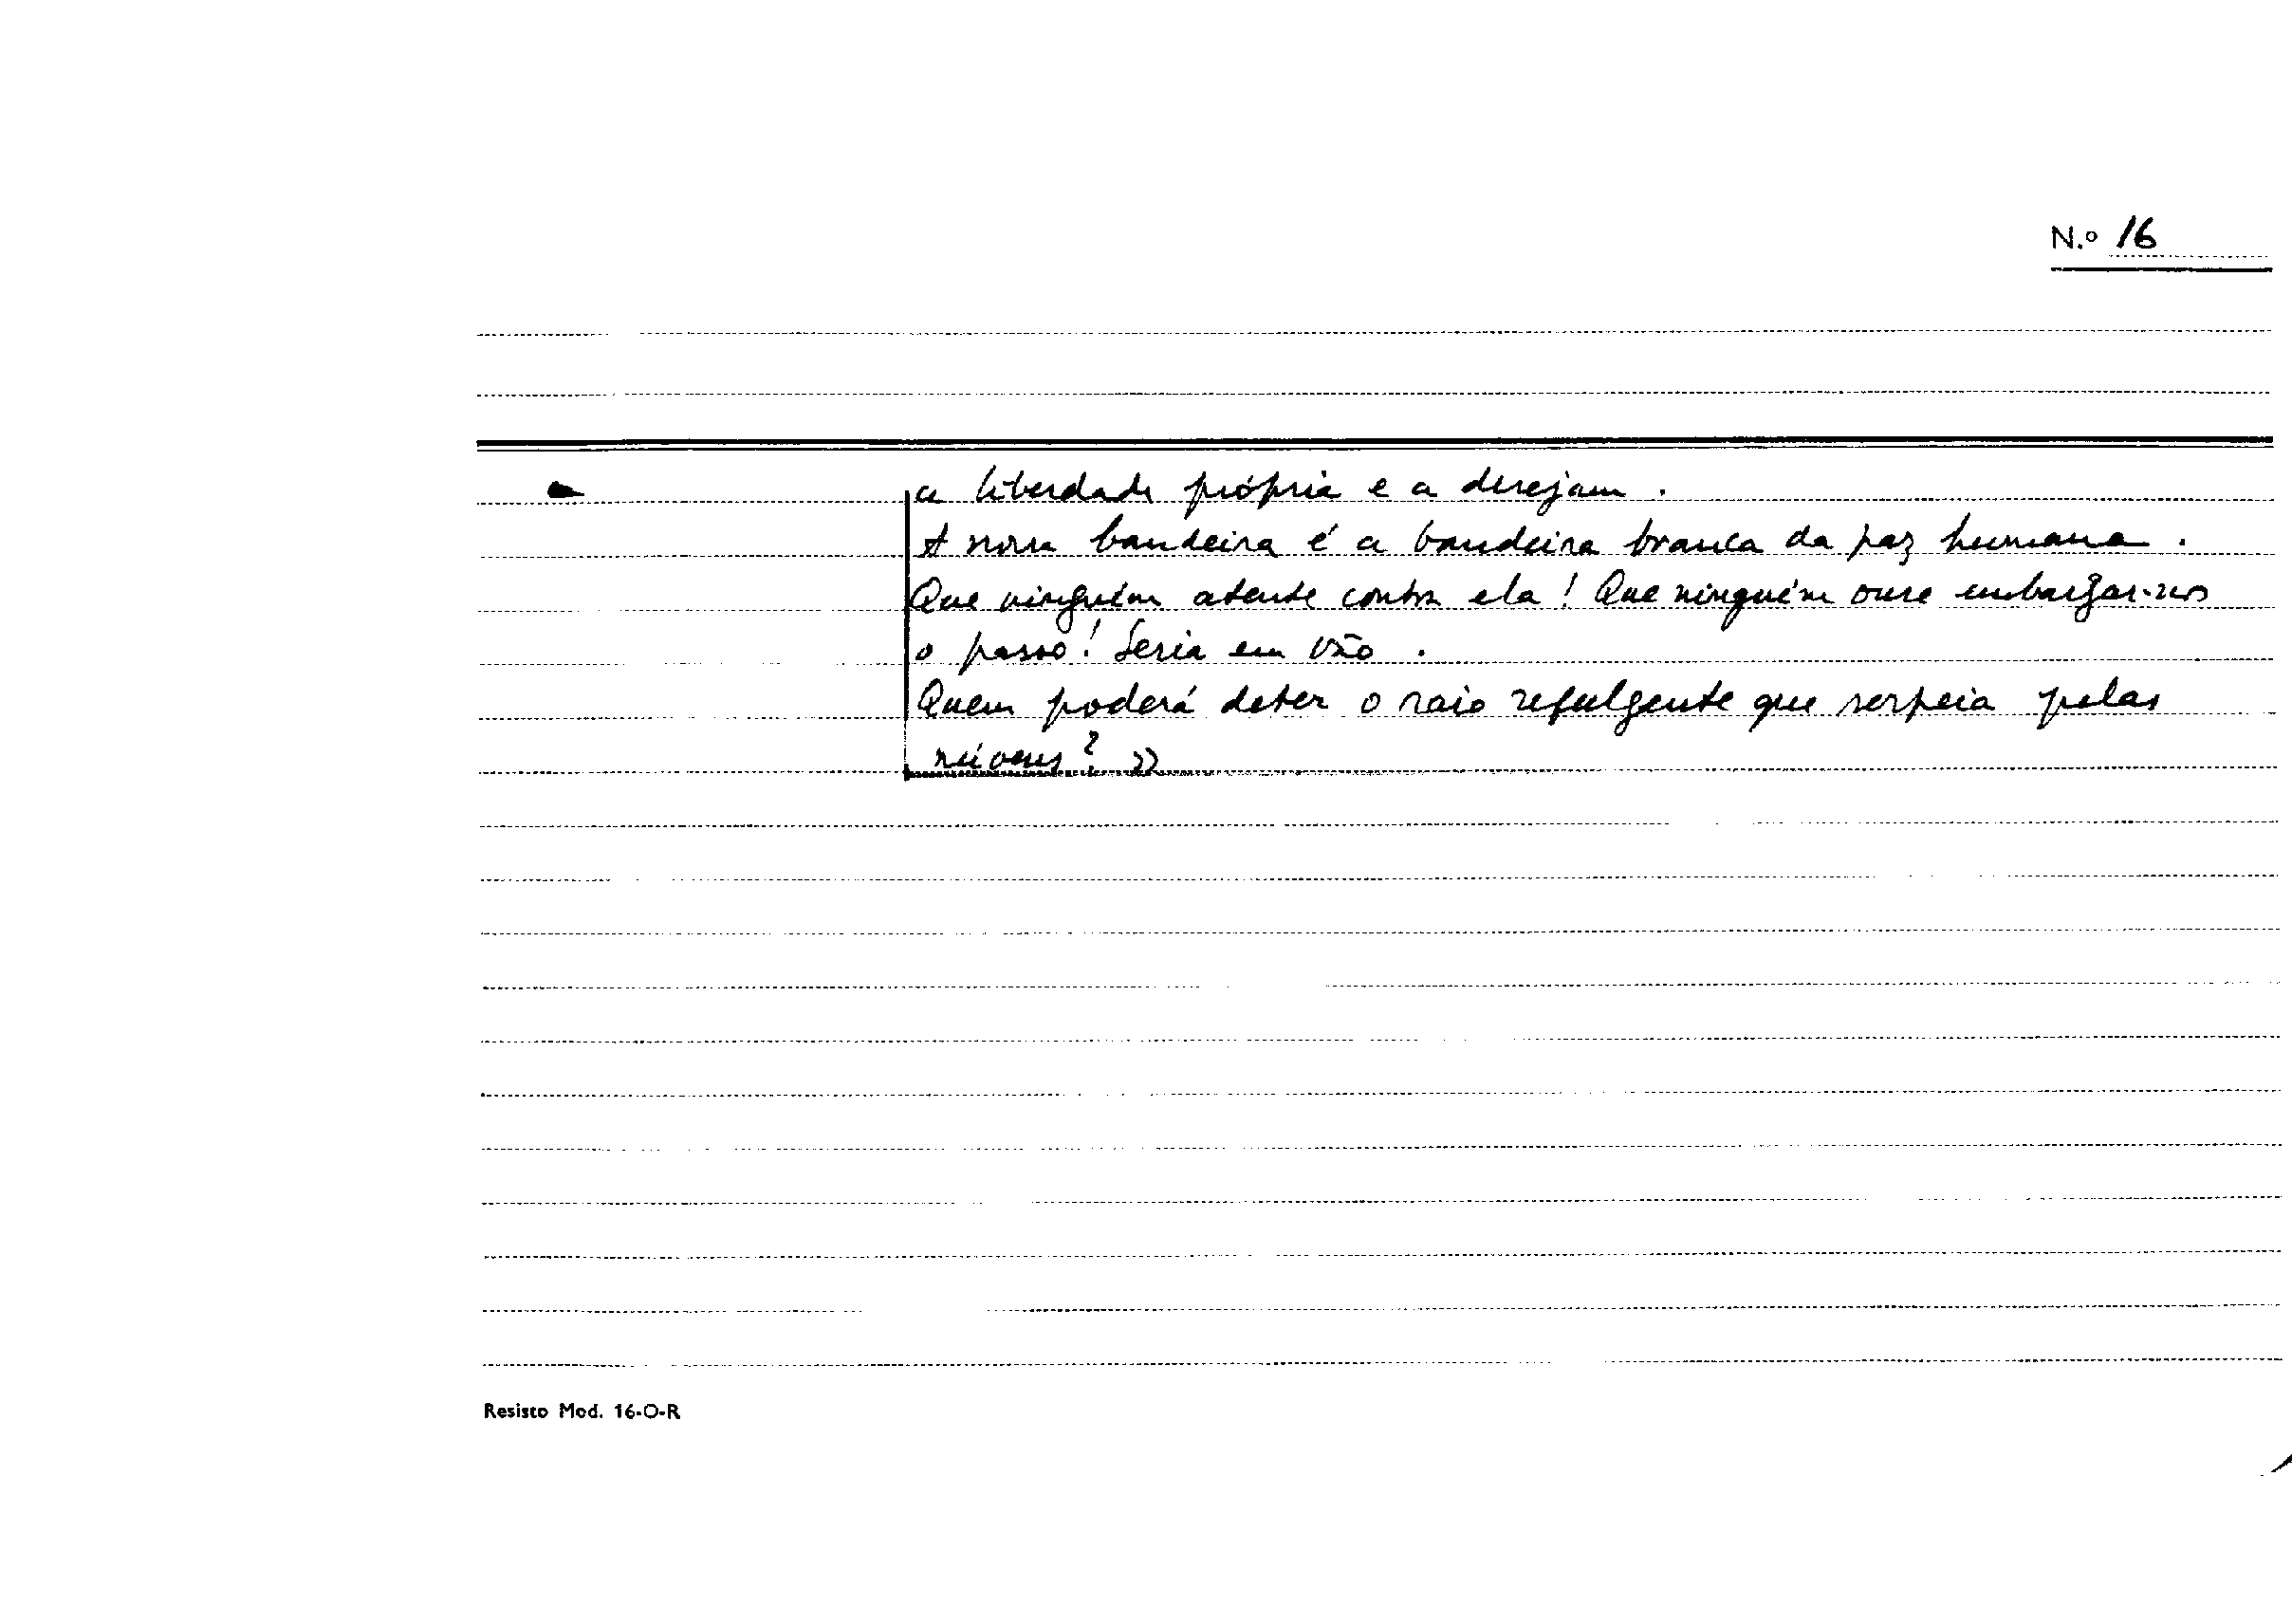 N.º 16
a liberdade própria e a desejam.
A nossa bandeira é a bandeira branca da paz humana.
Que ninguém atente contra ela! Que ninguém ouse embargar-nos
o passo! Seria em vão.
Quem poderá deter o raio refulgente que serpeia pelas
núvens? »
Resisto Mod. 16-O-R